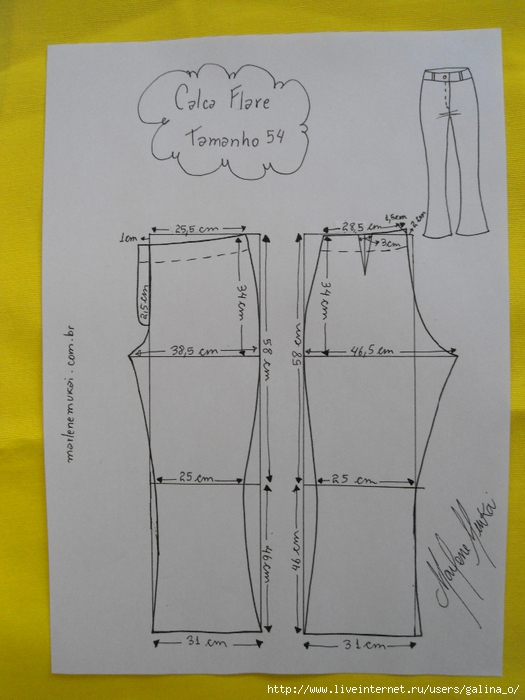 Calca Flare
Tamanho 54
25,5 cm
1cm
2,5cm
34cm
38,5 cm
58 cm
25 cm
46cm
31 cm
28,5 cm
1,5cm
2 cm
3cm
34cm
58 cm
46,5 cm
25 cm
46 cm
31 cm
marlenemukai.com.br
Marlene Mukai
http://www.liveinternet.ru/users/galina_o/